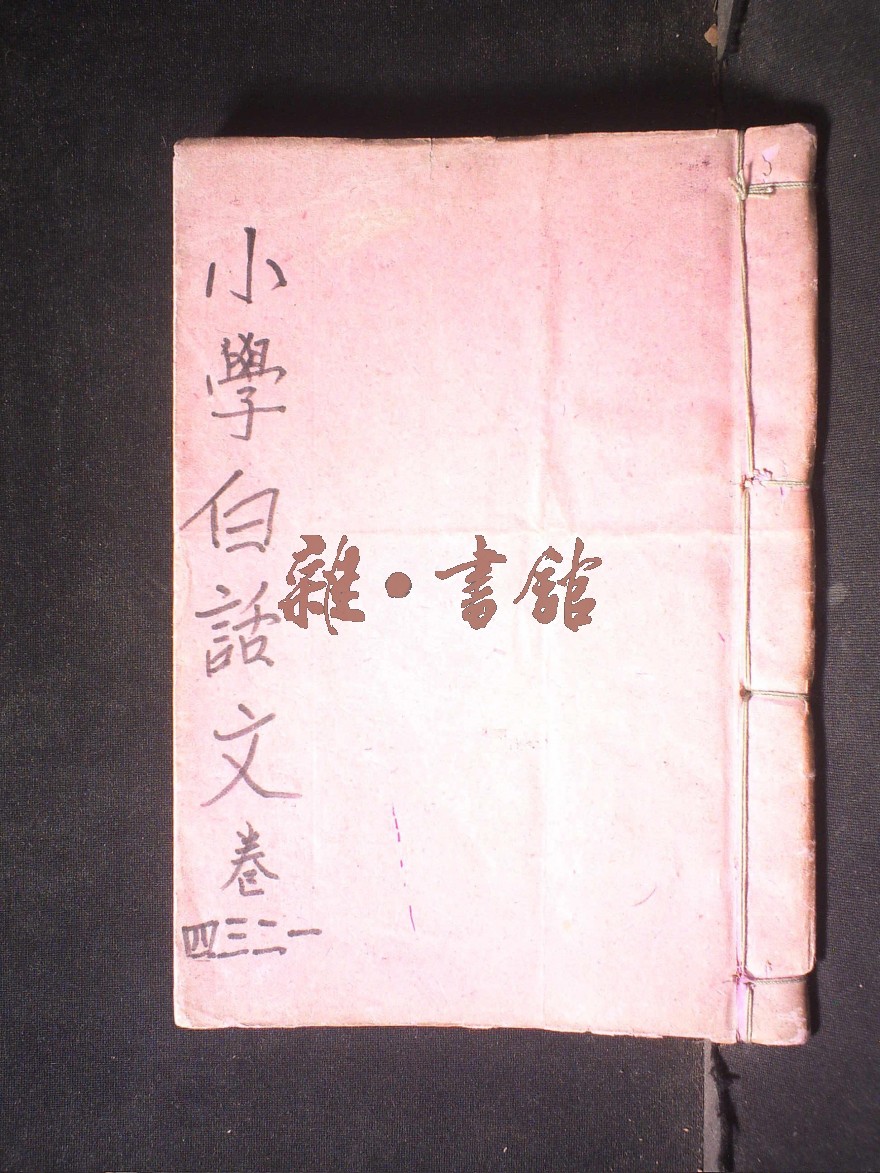 小學白話文卷
四三二一
雜·書館